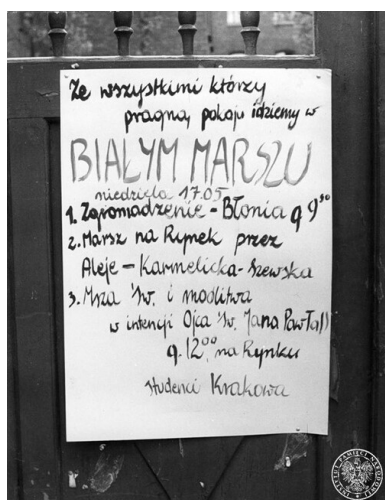 Ze wszystkimi którzy
pragną pokoju idziemy w
BIAŁYM MARSZU
niedziela 17.05
1. Zgromadzenie - Błonia g 9⁰⁰
2. Marsz na Rynek przez
Aleje - Karmelicka - Szewska
3. Msza św. i modlitwa
w intencji Ojca Św. Jana Pawła II
g. 12⁰⁰ na Rynku
studenci Krakowa